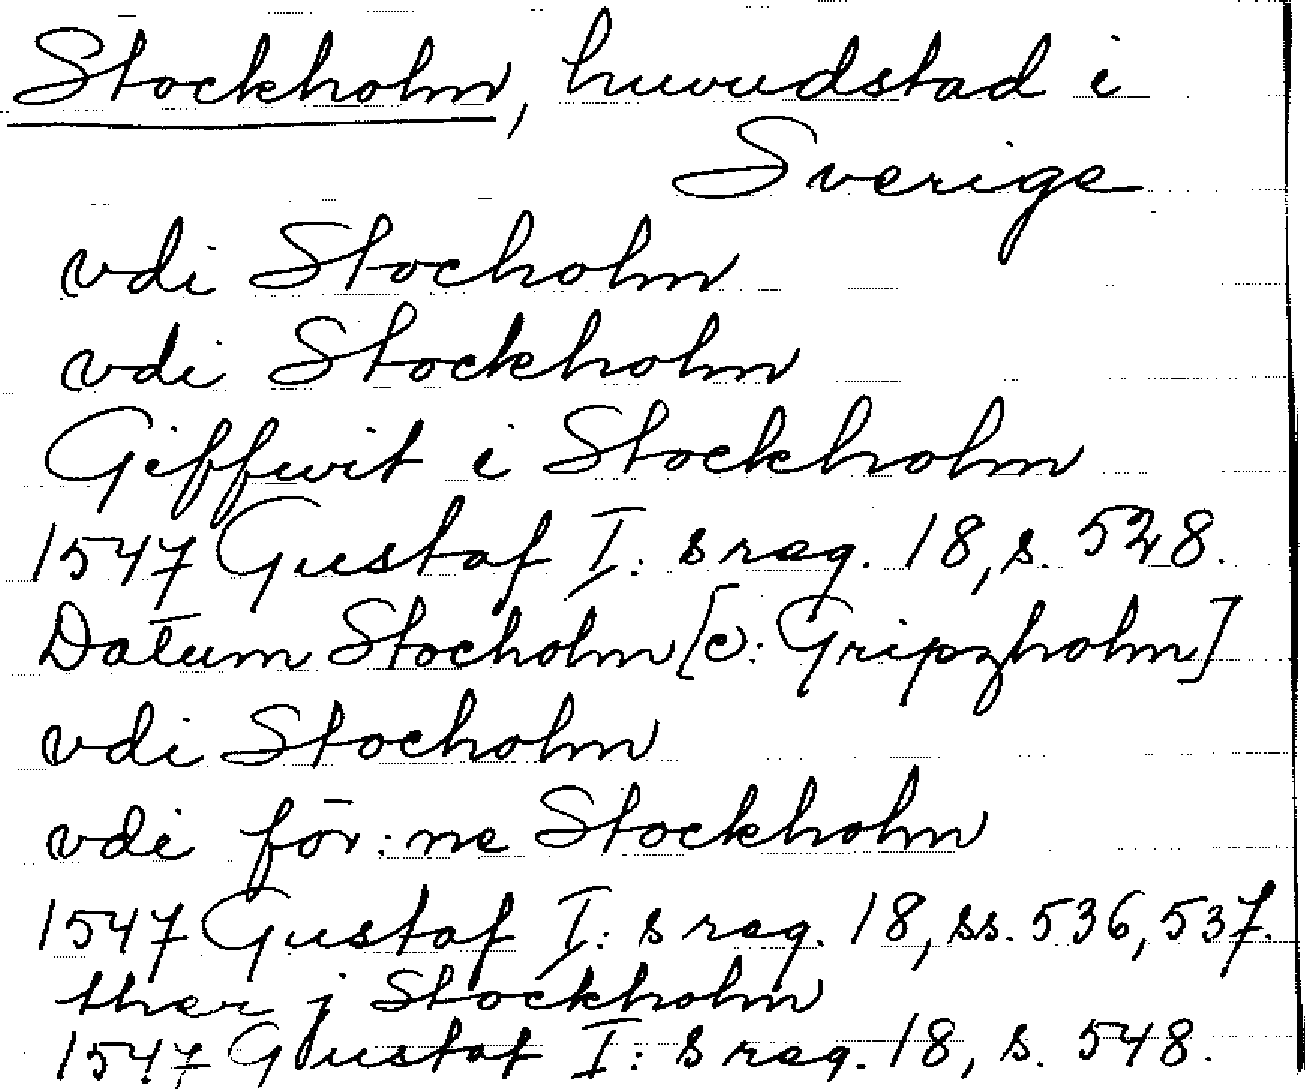 Stockholm, huvudstad i
Sverige
vdi Stocholm
vdi Stockholm
Giffwit i Stockholm
1547 Gustaf I: s reg. 18, s. 528.
Datum Stocholm [c: Gripzholm]
vdi Stocholm
vdi för:ne Stockholm
1547 Gustaf I: s reg. 18, ss. 536, 537.
ther j Stockholm
1547 Gustaf I: s reg. 18, s. 548.